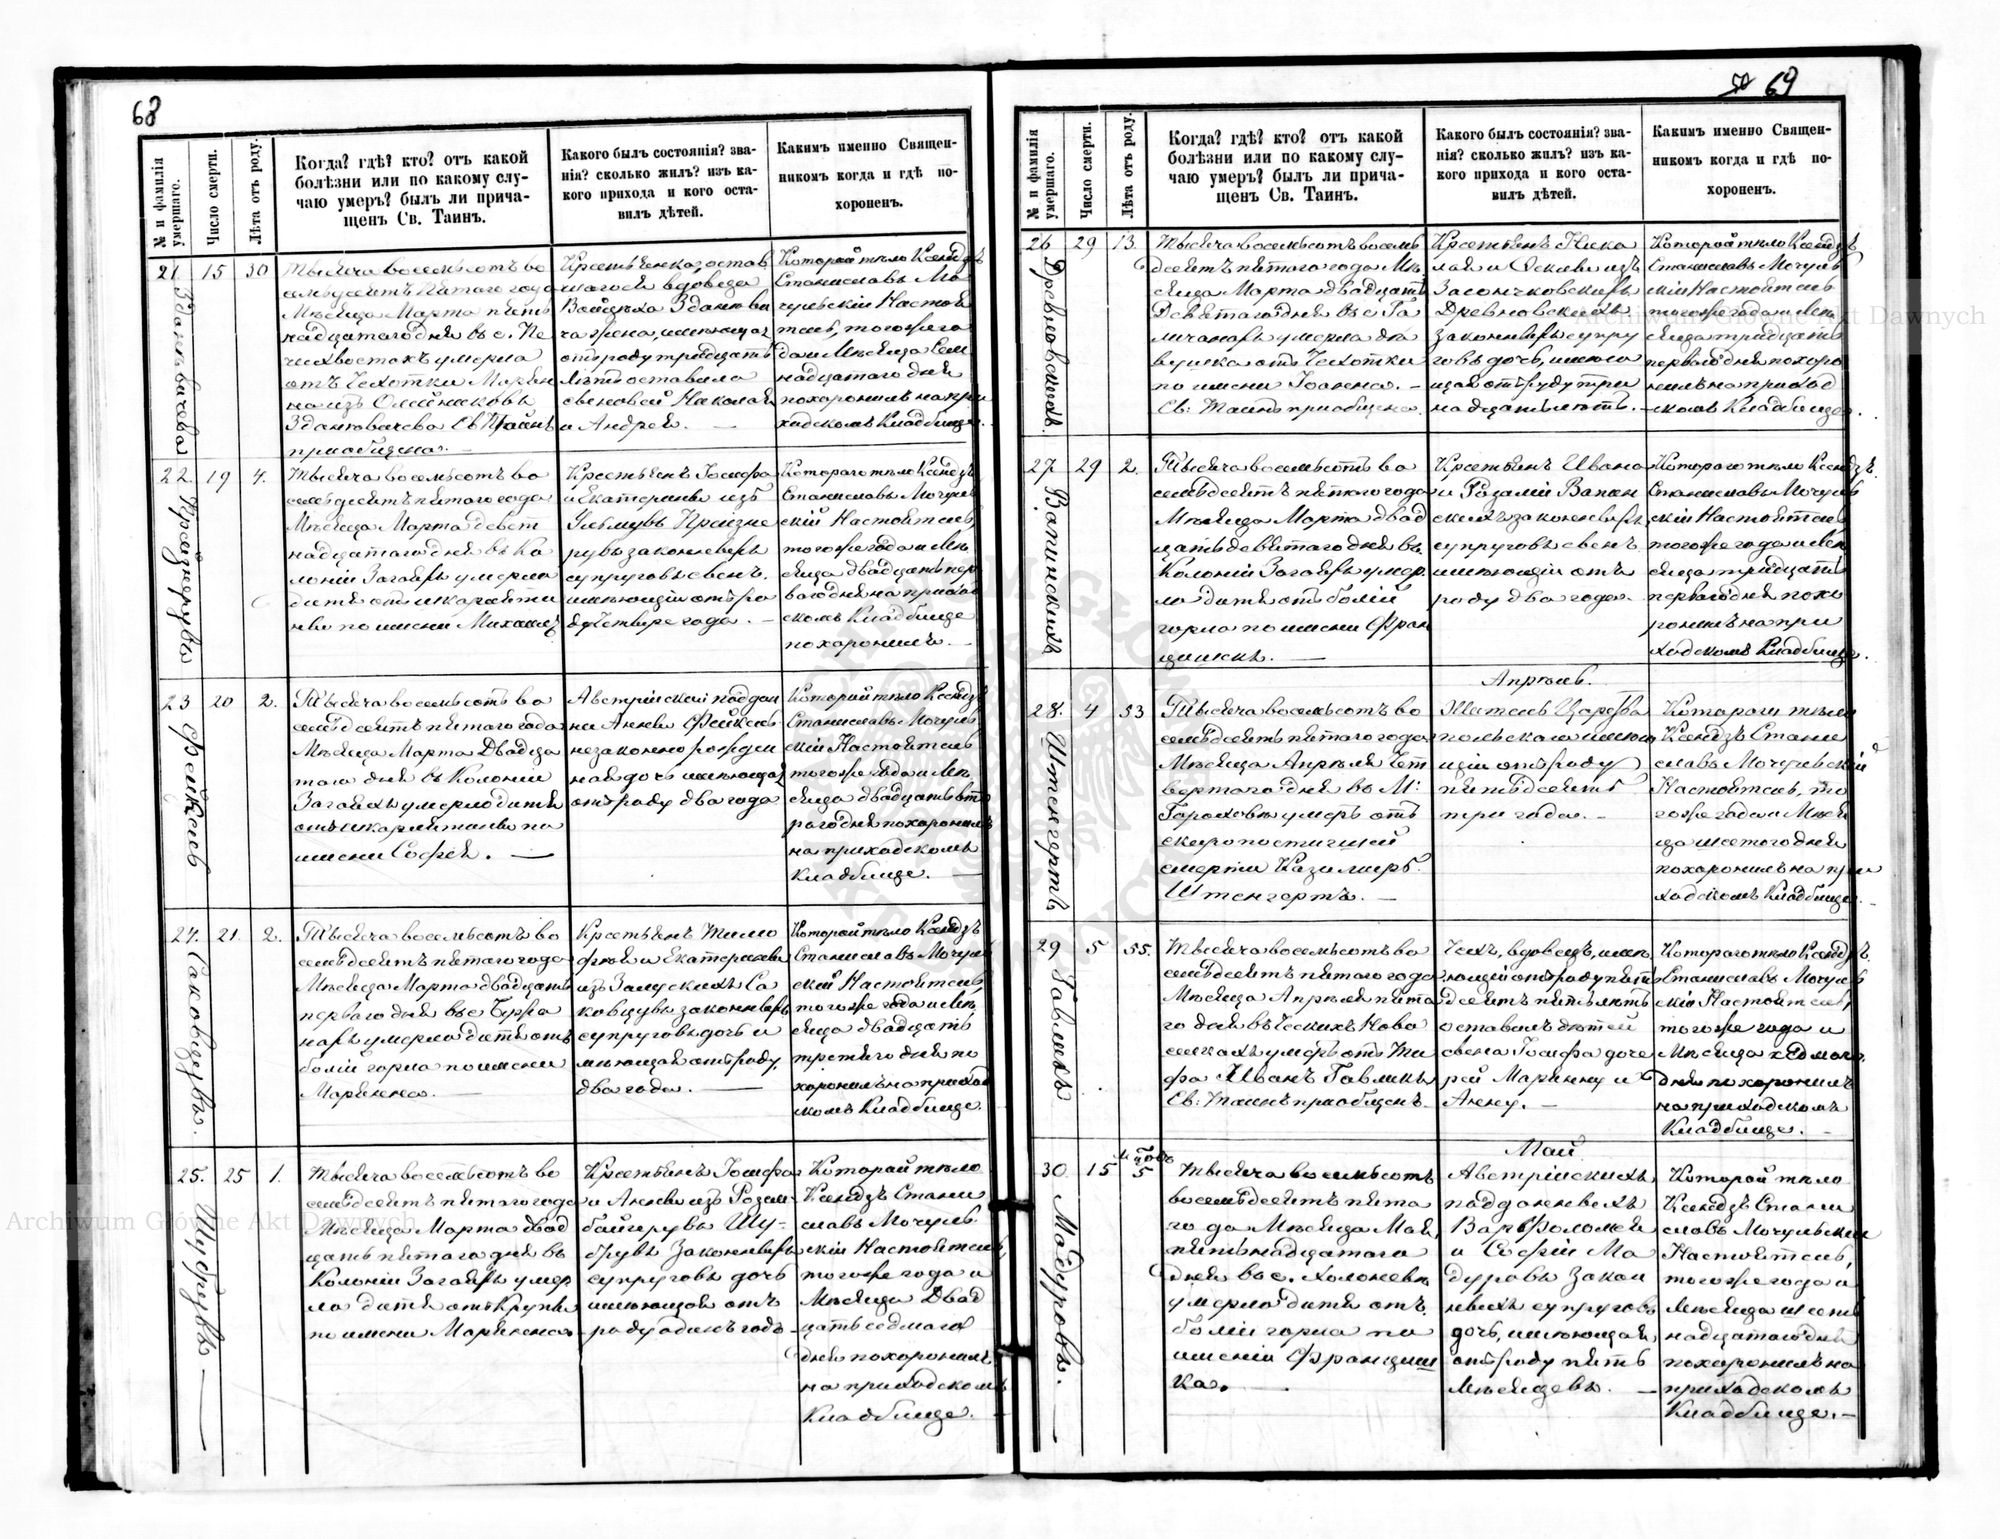 68
№ и фамилія умершаго.
Число смерти.
Лѣта отъ роду.
Когда? гдѣ? кто? отъ какой
болѣзни или по какому слу-
чаю умеръ? былъ ли прича-
щенъ Св. Таинъ.
Какого былъ состоянія? зва-
нія? сколько жилъ? изъ ка-
кого прихода и кого оста-
вилъ дѣтей.
Какимъ именно Священ-
никомъ когда и гдѣ по-
хороненъ.
21 15 30
Тысяча восемьсотъ во
семьдесятъ пятаго года
Мѣсяца Марта пят
надцатаго дня въ с. Пе
умерла
отъ чахотки Мариан
на изъ Олейниковъ
Св. Таинъ
приобщена.
Крестьянка, остав
Войцѣха
жена, имѣющая
отъ роду тридцать
лѣтъ оставила
сыновей Николая
и Андрея. —
Которой тѣло Ксендзъ
Станиславъ Мо
чульскій Настоя
тель, тогожъ го
да и Мѣсяца Сем
надцатаго дня
похоронилъ на при
ходскомъ Кладбище.
22. 19 4.
Тысяча восемьсотъ во
семьдесятъ пятаго года
Мѣсяца Марта девят
надцатаго дня въ Ко
лоніи Загаяхъ умерло
дитя отъ скарлати
ны по имени Михаилъ
Крестьянъ Іосифа
и Екатерины изъ
законныхъ
супруговъ сынъ.
имѣющій отъ ро
ду четыре года. —
Котораго тѣло Ксендзъ
Станиславъ Мочуль
скій Настоятель
тогоже года и Мѣ
сяца двадцать пер
ваго дня на приход
скомъ Кладбище
похоронилъ. —
23 20 2.
Фейкель
Тысяча восемьсотъ во
семьдесятъ пятаго года
Мѣсяца Марта Двадца
таго дня въ Колоніи
Загаяхъ умерло дитя
отъ скарлатины по
имени Софія. —
Австрійской поддан
ни Анны Фейкель
незаконно рожден
ная дочь имѣющая
отъ роду два года
Которой тѣло Ксендзъ
Станиславъ Мочуль
скій Настоятель
тогоже года и Мѣ
сяца двадцать вто
раго дня похоронилъ
на приходскомъ
Кладбище. —
24. 21. 2.
Тысяча восемьсотъ во
семьдесятъ пятаго года
Мѣсяца Марта двадцать
перваго дня въ с
умерла дитя отъ
боли горла по имени
Марянна. —
Крестьянъ Тимо
фея и Екатерины
изъ
законныхъ
супруговъ дочь и
мѣющая отъ роду
два года. —
Которой тѣло Ксендзъ
Станиславъ Мочуль
скій Настоятель,
тогоже года и Мѣ
сяца двадцать
третяго дня по
хоронилъ на приход
скомъ Кладбище.
25. 25 1.
Тысяча восемьсотъ во
семьдесятъ пятаго года
Мѣсяца Марта двад
цать пятаго дня въ
Колоніи Загаяхъ умер
ла дитя отъ Крупы
по имени Марянна
Крестьянъ Іосифа
и Анны изъ
законныхъ
супруговъ дочь
имѣющая отъ
роду одинъ годъ
Которой тѣло
Ксендзъ Стани
славъ Мочуль
скій Настоятель
тогоже года и
Мѣсяца Двад
цать седмаго
дня похоронилъ
на приходскомъ
Кладбище. —
69
№ и фамилія умершаго.
Число смерти.
Лѣта отъ роду.
Когда? гдѣ? кто? отъ какой
болѣзни или по какому слу-
чаю умеръ? былъ ли прича-
щенъ Св. Таинъ.
Какого былъ состоянія? зва-
нія? сколько жилъ? изъ ка-
кого прихода и кого оста-
вилъ дѣтей.
Какимъ именно Священ-
никомъ когда и гдѣ по-
хороненъ.
26 29 13.
Древновсковна.
Тысяча восемьсотъ восемь
десятъ пятаго года Мѣ
сяца Марта двадцать
Девятаго дня въ с
умерла дѣ
вушка отъ Чахотки
по имени Іоанна. —
Св: Таинъ приобщена.
Крестьянъ Нико
лая и
Древновскихъ
законныхъ супру
говъ дочь, имѣю
щая отъ роду три
надцать лѣтъ. —
Которой тѣло Ксендзъ
Станиславъ Мочуль
скій Настоятель
тогоже года и Мѣ
сяца тридцать
перваго дня похоро
нилъ на приход
скомъ Кладбище.
27 29 2.
Вапинскихъ
Тысяча восемьсотъ во
семьдесятъ пятаго года
Мѣсяца Марта двад
цать девятаго дня въ
Колоніи Загаяхъ умер
ло дитя отъ болій
горла по имени Фран
цишкъ. —
Крестьянъ Ивана
и Розаліи Вапин
скихъ законныхъ
супруговъ сынъ.
имѣющій отъ
роду два года. —
Котораго тѣло Ксендзъ
Станиславъ Мочуль
скій Настоятель
тогоже года и Мѣ
сяца тридцать
перваго дня похо
ронилъ на при
ходскомъ Кладбище.
Апрѣль.
28. 4 53
Штенгертъ
Тысяча восемьсотъ во
семьдесятъ пятаго года
Мѣсяца Апрѣля Чет
вертаго дня въ М:
Гороховѣ умеръ отъ
скоропостигшей
смерти Казимиръ
Штенгертъ. —
Житель Царства
польскаго имѣю
щій отъ роду
пятьдесятъ
три года. —
Котораго тѣло
Ксендзъ Стани
славъ Мочульскій
Настоятель, то
гоже года и Мѣся
ца шестого дня
похоронилъ на при
ходскомъ Кладбище.
29 5 55.
Гавликъ
Тысяча восемьсотъ во
семьдесятъ пятаго года
Мѣсяца Апрѣля пята
го дня въ Ческихъ Ново
селкахъ умеръ отъ Ти
фа Иванъ Гавликъ
Св: Таинъ приобщенъ
Чехъ, вдовецъ, имѣ
ющій отъ роду пять
десятъ пять лѣтъ
оставилъ дѣтей
сына Іосифа доче
рей Марянну и
Анну. —
Котораго тѣло Ксендзъ
Станиславъ Мочуль
скій Настоятель,
тогоже года и
Мѣсяца седмаго
дня похоронилъ
на приходскомъ
Кладбище. —
Май
30. 15 5
Мадуровъ. —
Тысяча восемьсотъ
восемьдесятъ пята
го да Мѣсяца Мая,
пятьнадцатаго
дня въ с. Холоневѣ
умерла дитя отъ
боли горла по
имени Францишка. —
Австрійскихъ
подданныхъ
Варфоломея
и Софіи Ма
дуровъ закон
ныхъ супруговъ
дочь, имѣющая
отъ роду пять
Мѣсяцевъ. —
Которой тѣло
Ксендзъ Стани
славъ Мочульскій
Настоятель,
тогоже года и
Мѣсяца шест
надцатаго дня
похоронилъ на
приходскомъ
Кладбище. —
Archiwum Główne Akt Dawnych
Archiwum Główne Akt Dawnych